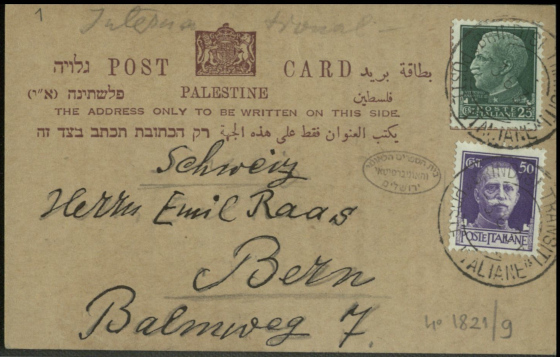 1
International
גלויה POST CARD بطاقة بريد
פלשתינה (א״י) PALESTINE فلسطين
THE ADDRESS ONLY TO BE WRITTEN ON THIS SIDE
רק הכתובת תכתב בצד זה يكتب العنوان فقط على هذه الجهة
Schweiz
Herrn Emil Raas
Bern
Balmweg 7.
No 1821/9
CENT. 25
POSTE ITALIANE
CENT. 50
POSTE ITALIANE